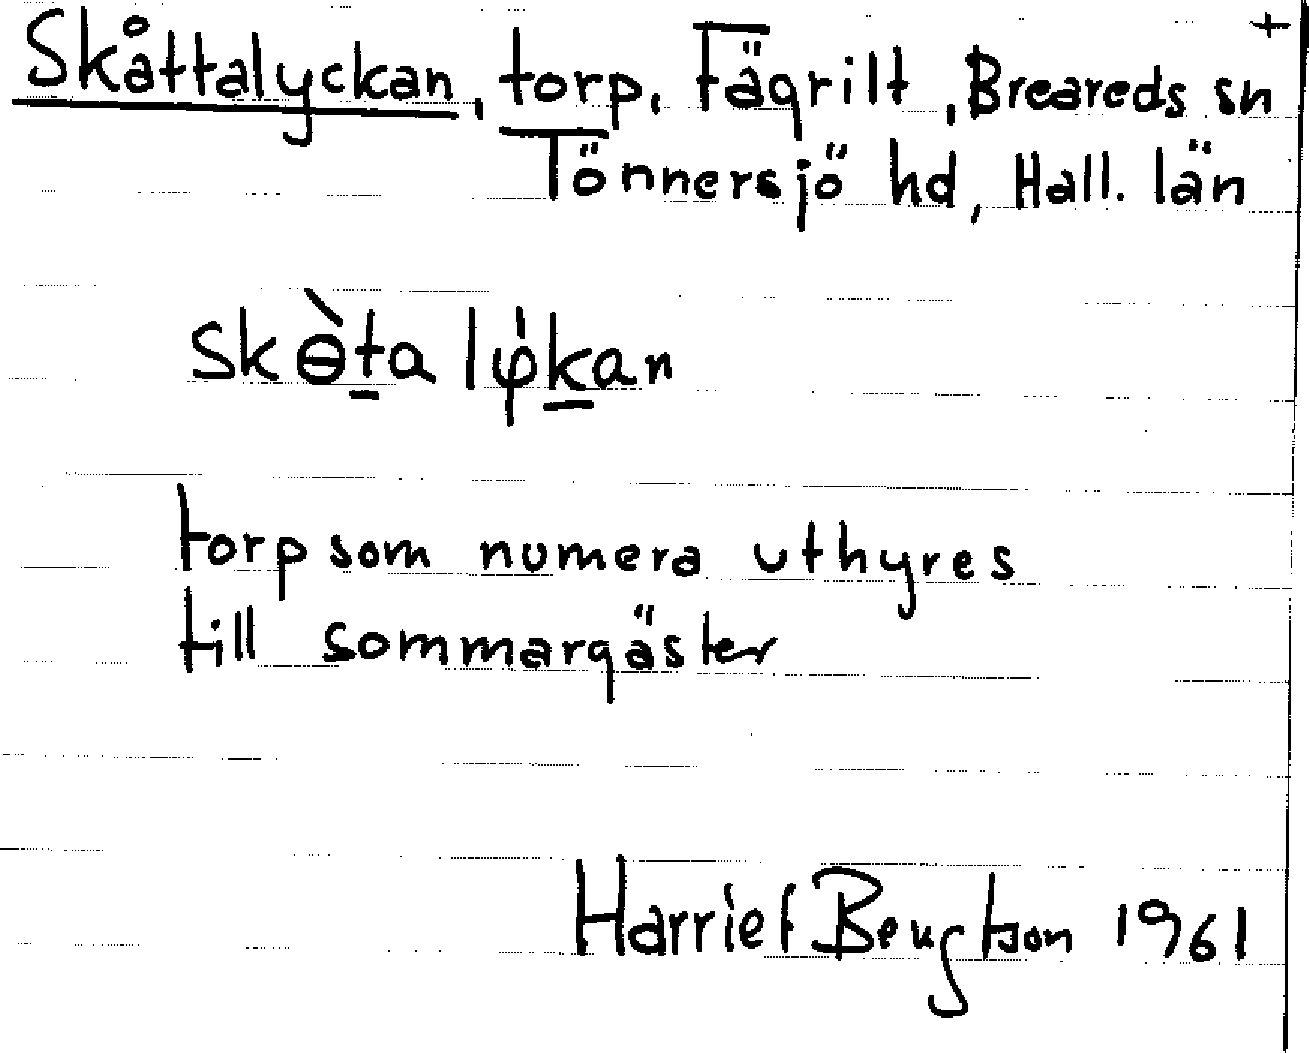 Skåttalyckan, torp, Fägrilt, Breareds sn +
Tönnersjö hd, Hall. län
skɵ̀ṯa lφ́ḵan
torp som numera uthyres
till sommargäster
Harriet Bengtson 1961